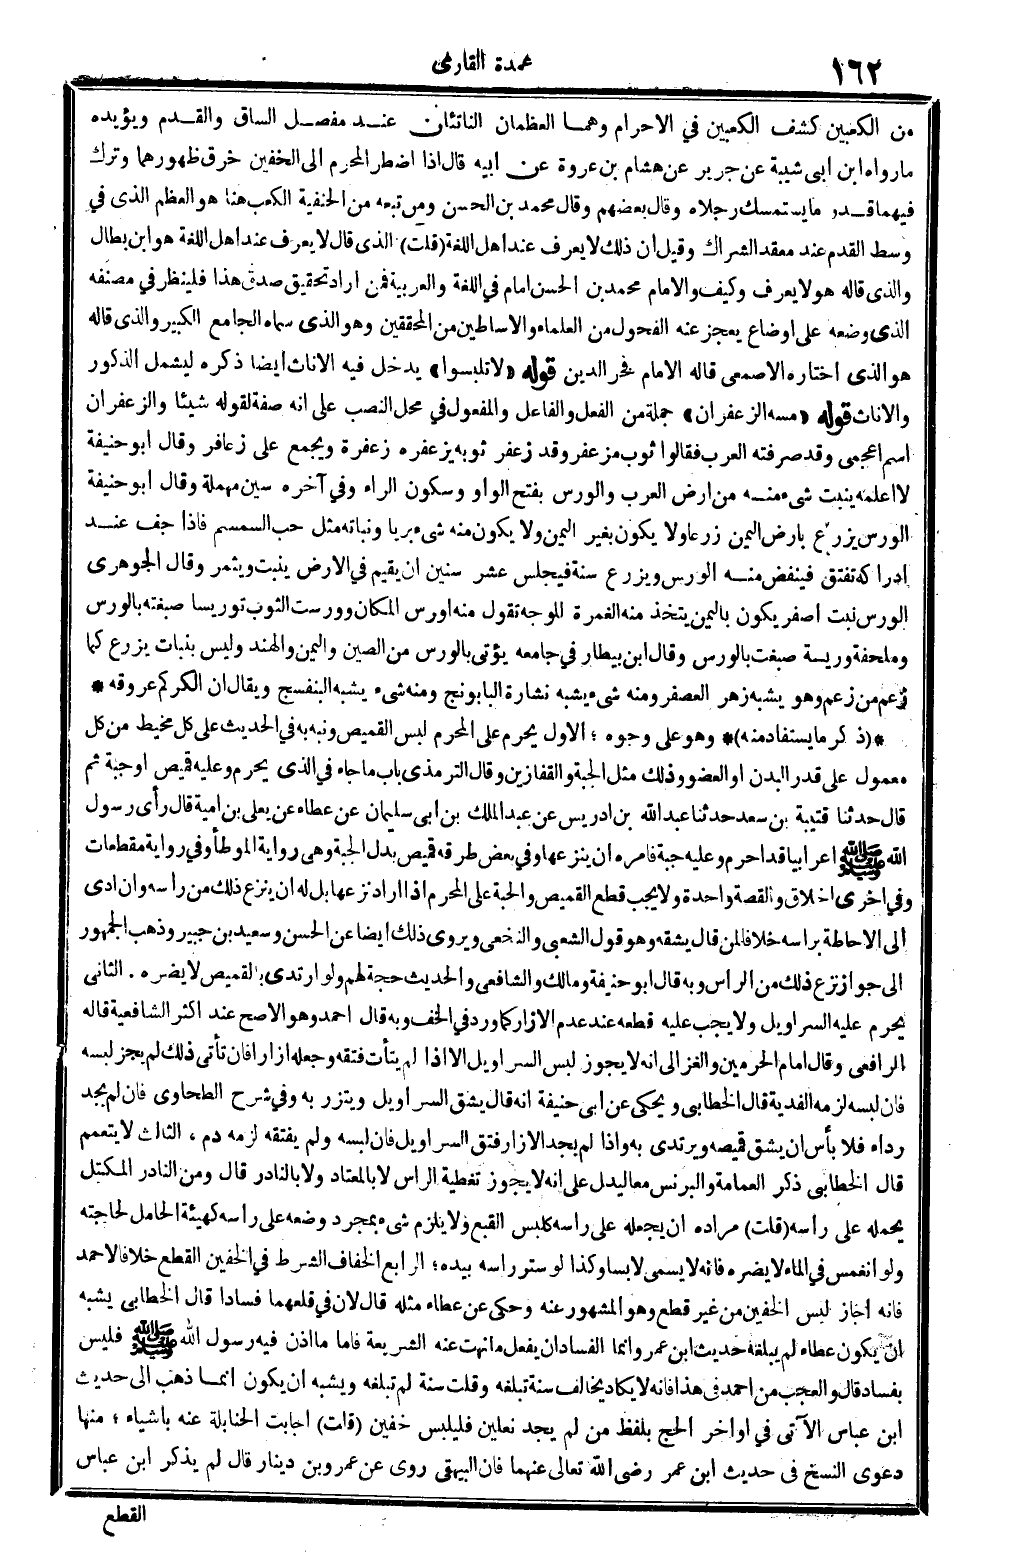 ١٦٢
عمدة القارئ
من الكعبين كشف الكعبين في الاحرام وهما العظمان الناتئان عند مفصل الساق والقدم ويؤيده
مارواه ابن ابى شيبة عن جرير عن هشام بن عروة عن ابيه قال اذا اضطر المحرم الى الخفين خرق ظهورهما وترك
فيهما قدر ما يستمسك رجلاه وقال بعضهم وقال محمد بن الحسن ومن تبعه من الحنفية الكعب هنا هو العظم الذى في
وسط القدم عند معقد الشراك وقيل ان ذلك لا يعرف عند اهل اللغة (قلت) الذى قال لا يعرف عند اهل اللغة هو ابن بطال
والذى قاله هو لا يعرف وكيف والامام محمد بن الحسن امام في اللغة والعربية فمن اراد تحقيق صدق هذا فلينظر في مصنفه
الذى وضعه على اوضاع يعجز عنه الفحول من العلماء والاساطين من المحققين وهو الذى سماه الجامع الكبير والذى قاله
هو الذى اختاره الاصمعى قاله الامام فخر الدين قوله «لا تلبسوا» يدخل فيه الاناث ايضا ذكره ليشمل الذكور
والاناث قوله «مسه الزعفران» جملة من الفعل والفاعل والمفعول في محل النصب على انه صفة لقوله شيئا والزعفران
اسم اعجمى وقد صرفته العرب فقالوا ثوب مزعفر وقد زعفر ثوبه يزعفره زعفرة ويجمع على زعافر وقال ابو حنيفة
لا اعلمه ينبت شىء منه من ارض العرب والورس بفتح الواو وسكون الراء وفي آخره سين مهملة وقال ابو حنيفة
الورس يزرع بارض اليمن زرعا ولا يكون بغير اليمن ولا يكون منه شىء بريا ونباته مثل حب السمسم فاذا جف عند
ادراكه تفتق فينفض منه الورس ويزرع سنة فيجلس عشر سنين ان يقيم في الارض ينبت ويثمر وقال الجوهرى
الورس نبت اصفر يكون باليمن يتخذ منه الغمرة للوجه تقول منه اورس المكان وورست الثوب توريسا صبغته بالورس
وملحفة وريسة صبغت بالورس وقال ابن بيطار في جامعه يؤتى بالورس من الصين واليمن والهند وليس بنبات يزرع كما
زعم من زعم وهو يشبه زهر العصفر ومنه شىء يشبه نشارة البابونج ومنه شىء يشبه البنفسج ويقال ان الكركم عروقه *
*(ذكر ما يستفاد منه)* وهو على وجوه ؛ الاول يحرم على المحرم لبس القميص ونبه به في الحديث على كل مخيط من كل
معمول على قدر البدن او العضو وذلك مثل الجبة والقفازين وقال الترمذى باب ما جاء في الذى يحرم وعليه قميص او جبة ثم
قال حدثنا قتيبة بن سعد حدثنا عبد الله بن ادريس عن عبد الملك بن ابى سليمان عن عطاء عن يعلى بن امية قال رأى رسول
الله ﷺ اعرابيا قد احرم وعليه جبة فامره ان ينزعها وفي بعض طرقه قميص بدل الجبة وهى رواية الموطأ وفي رواية مقطعات
وفي اخرى اخلاق والقصة واحدة ولا يجب قطع القميص والجبة على المحرم اذا اراد نزعها بل له ان ينزع ذلك من رأسه وان ادى
الى الاحاطة براسه خلافا لمن قال يشقه وهو قول الشعبى والنخعى ويروى ذلك ايضا عن الحسن وسعيد بن جبير وذهب الجمهور
الى جواز نزع ذلك من الراس وبه قال ابو حنيفة ومالك والشافعى والحديث حجة لهم ولو ارتدى بالقميص لا يضره . الثانى
يحرم عليه السراويل ولا يجب عليه قطعه عند عدم الازار كما ورد في الخف وبه قال احمد وهو الاصح عند اكثر الشافعية قاله
الرافعى وقال امام الحرمين والغزالى انه لا يجوز لبس السراويل الا اذا لم يتأت فتقه وجعله ازارا فان تأتى ذلك لم يجز لبسه
فان لبسه لزمه الفدية قال الخطابى ويحكى عن ابى حنيفة انه قال يشق السراويل ويتزر به وفي شرح الطحاوى فان لم يجد
رداء فلا بأس ان يشق قميصه ويرتدى به واذا لم يجد الازار فتق السراويل فان لبسه ولم يفتقه لزمه دم ، الثالث لا يتعمم
قال الخطابى ذكر العمامة والبرنس معا ليدل على انه لا يجوز تغطية الراس لا بالمعتاد ولا بالنادر قال ومن النادر المكتل
يحمله على رأسه (قلت) مراده ان يجعله على راسه كلبس القبع ولا يلزم شىء بمجرد وضعه على رأسه كهيئة الحامل لحاجته
ولو انغمس في الماء لا يضره فانه لا يسمى لابسا وكذا لو ستر راسه بيده ؛ الرابع الخفاف الشرط في الخفين القطع خلافا لاحمد
فانه اجاز لبس الخفين من غير قطع وهو المشهور عنه وحكى عن عطاء مثله قال لان في قلعهما فسادا قال الخطابى يشبه
ان يكون عطاء لم يبلغه حديث ابن عمر وانما الفساد ان يفعل ما نهت عنه الشريعة فاما ما اذن فيه رسول الله ﷺ فليس
بفساد قال والعجب من احمد في هذا فانه لا يكاد يخالف سنة تبلغه وقلت سنة لم تبلغه ويشبه ان يكون انما ذهب الى حديث
ابن عباس الآتى في اواخر الحج بلفظ من لم يجد نعلين فليلبس خفين (قلت) اجابت الحنابلة عنه باشياء ؛ منها
دعوى النسخ فى حديث ابن عمر رضى الله تعالى عنهما فان البيهقى روى عن عمرو بن دينار قال لم يذكر ابن عباس
القطع